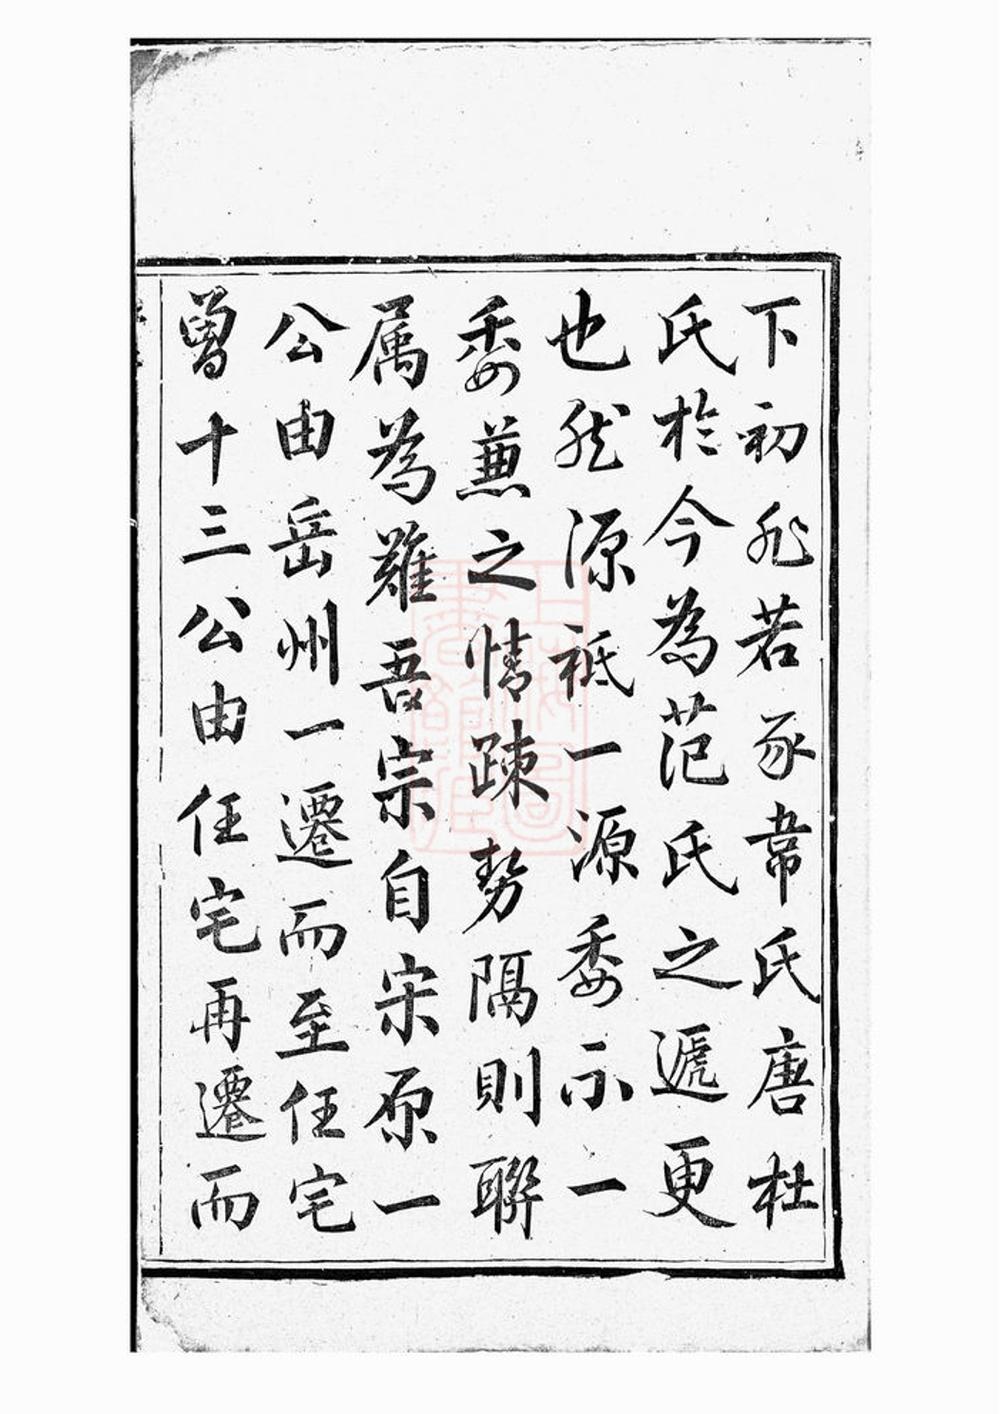 下初非若豕韋氏唐杜
氏於今為范氏之遞更
也然源祗一源委示一
委蕙之情疎勢隔則聯
属為難吾宗自宋原一
公由岳州一遷而至任宅
曾十三公由任宅再遷而
上海圖
書館藏